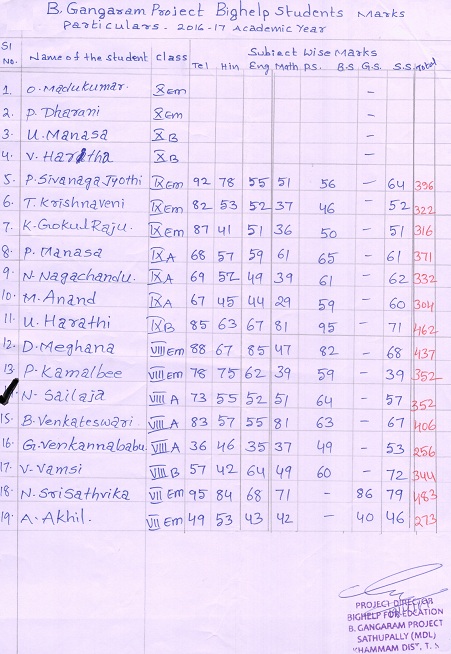 B. Gangaram Project Bighelp Students Marks
Particulars. 2016-17 Academic Year
Sl No. Name of the student Class Subject Wise Marks
Tel Hin Eng Math P.S. B.S G.S. S.S. Total
1. O. Madukumar. X Em -
2. P. Dharani X Em -
3. U. Manasa X B -
4. V. Haritha X B -
5. P. Sivanaga Jyothi IX Em 92 78 55 51 56 - 64 396
6. T. Krishnaveni IX Em 82 53 52 37 46 - 52 322
7. K. Gokul Raju. IX Em 87 41 51 36 50 - 51 316
8. P. Manasa IX A 68 57 59 61 65 - 61 371
9. N. Nagachandu. IX A 69 52 49 39 61 - 62 332
10. M. Anand IX A 67 45 44 29 59 - 60 304
11. U. Harathi IX B 85 63 67 81 95 - 71 462
12. D. Meghana VIII Em 88 67 85 47 82 - 68 437
13. P. Kamalbee VIII Em 78 75 62 39 59 - 39 352
N. Sailaja VIII A 73 55 52 51 64 - 57 352
15. B. Venkateswari. VIII A 83 57 55 81 63 - 67 406
16. G. Venkannababu. VIII A 36 46 35 37 49 - 53 256
17. V. Vamsi VIII B 57 42 64 49 60 - 72 344
18. N. Sri Sathvika VII Em 95 84 68 71 - 86 79 483
19. A. Akhil. VII Em 49 53 43 42 - 40 46 273
PROJECT DIRECTOR
BIGHELP FOR EDCATION
B. GANGARAM PROJECT
SATHUPALLY (MDL)
KHAMMAM DIST, T.S